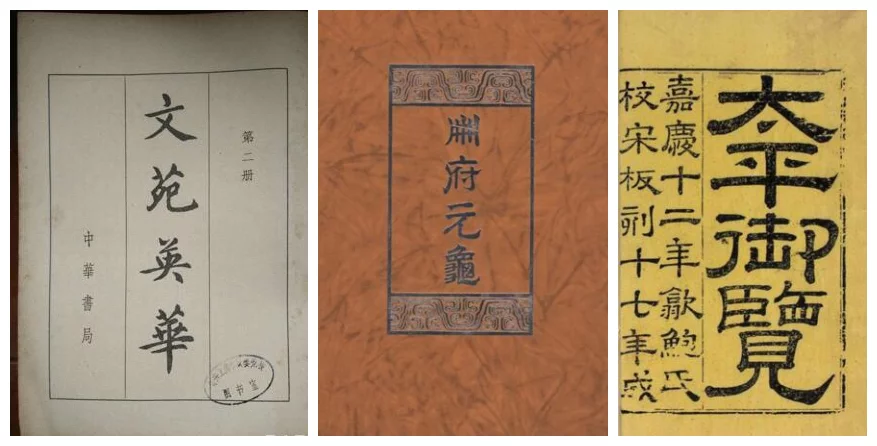 第二册
文苑英華
中華書局
图书室
冊府元龜
太平御覽
嘉慶十二年歙鮑氏
校宋板刻十七年成